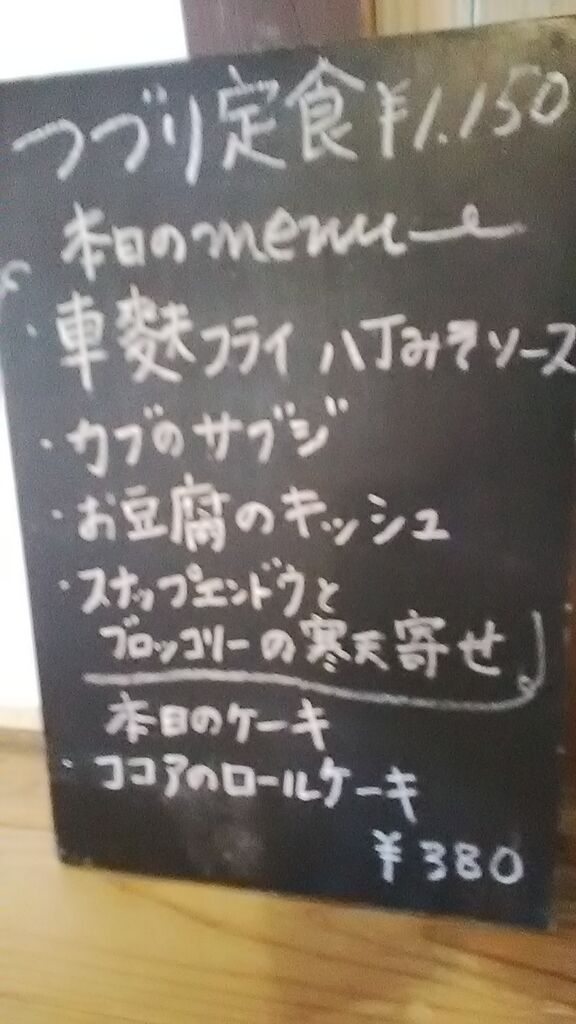 つづり定食 ¥1.150
本日のmenu
・車麩フライ 八丁みそソース
・カブのサブジ
・お豆腐のキッシュ
・スナップエンドウと
ブロッコリーの寒天寄せ
本日のケーキ
・ココアのロールケーキ
¥380